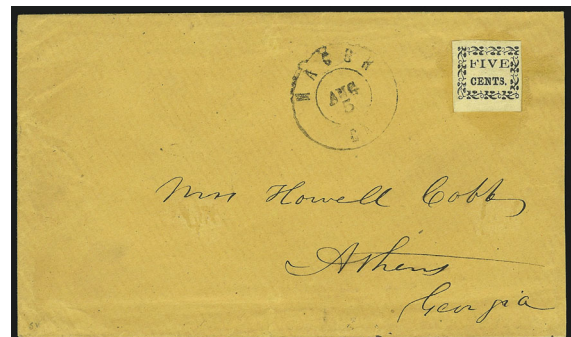 MACON
AUG
5
G
FIVE
CENTS.
Mrs Howell Cobb
Athens
Georgia